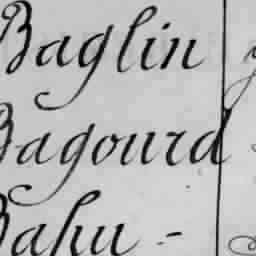 Baglin
Bagourd
Bahu -